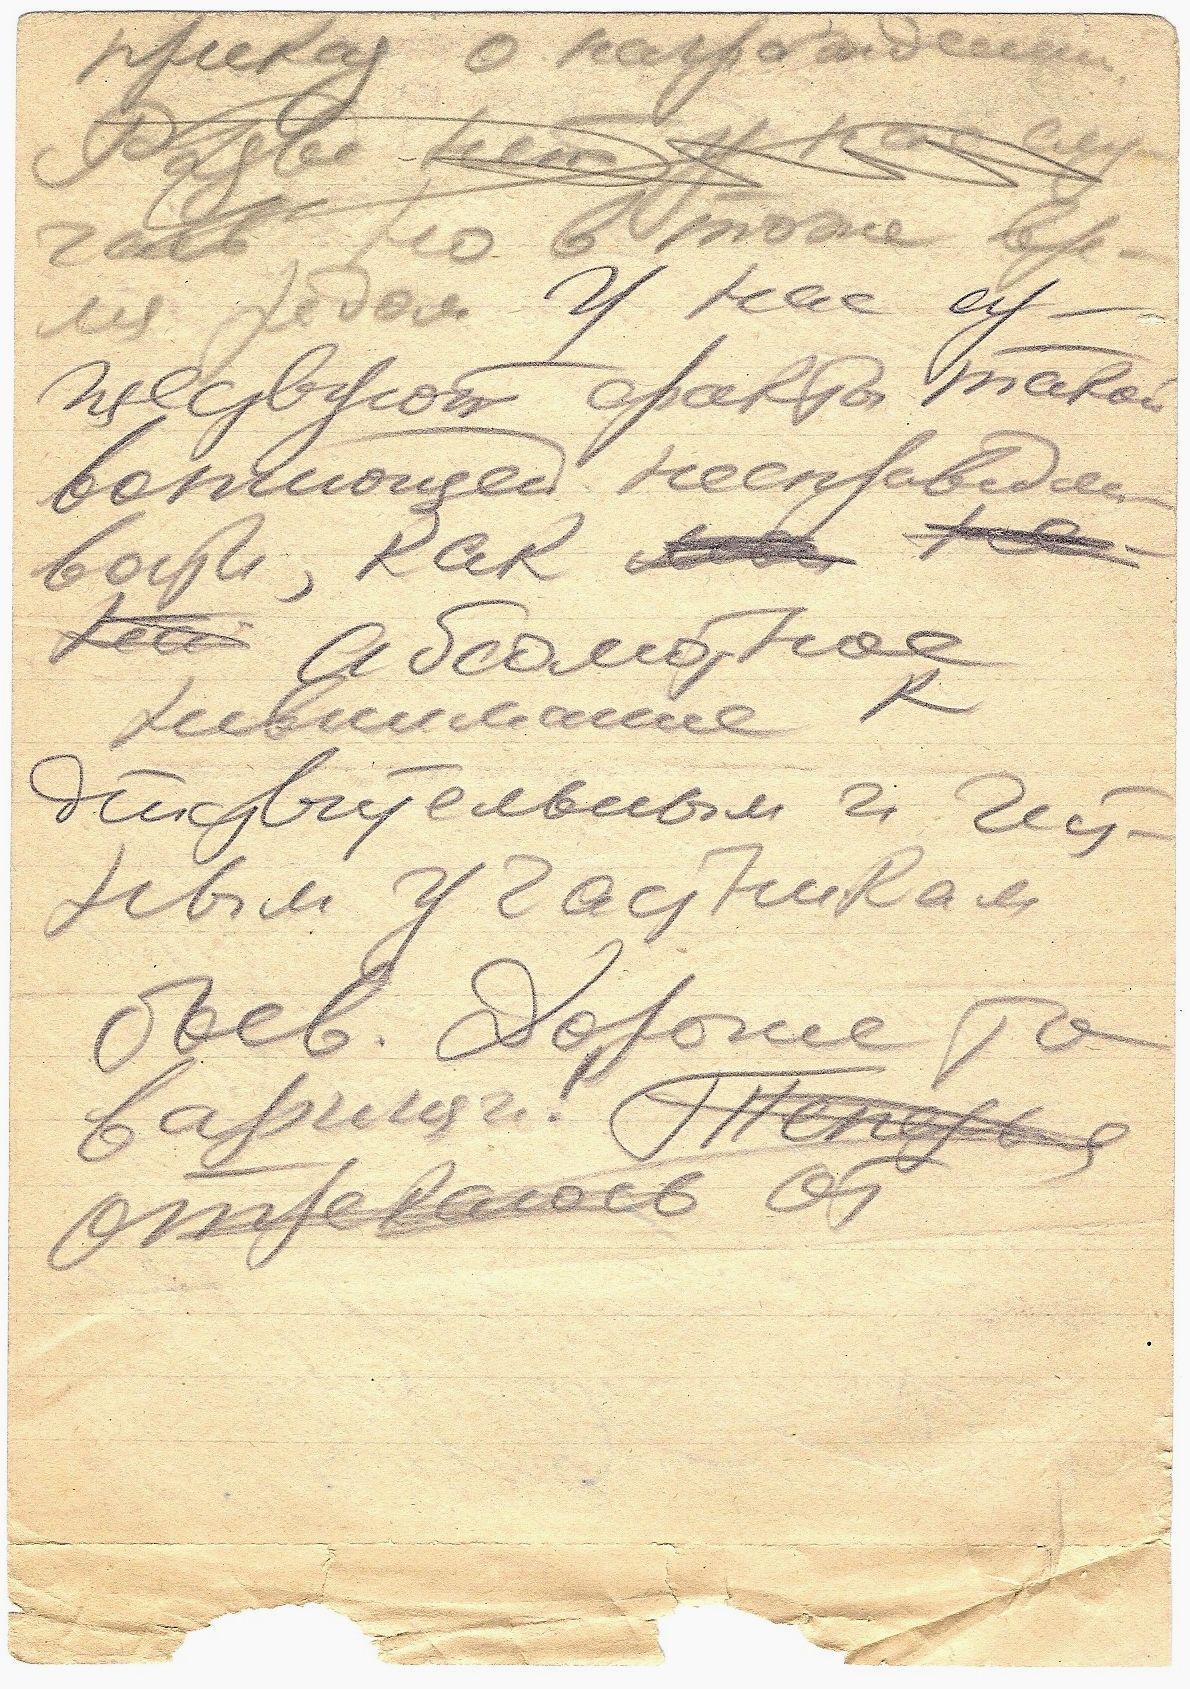 приказ о награждении.
Разве нет у нас слу-
чаев но в тоже вре-
мя рядом у нас су-
ществуют факты такой
вопиющей несправедли-
вости, как
абсолютное
невнимание к
действительным и чест-
ным участникам
боев. Дорогие то
варищи! Теперь я
отрекаюсь от